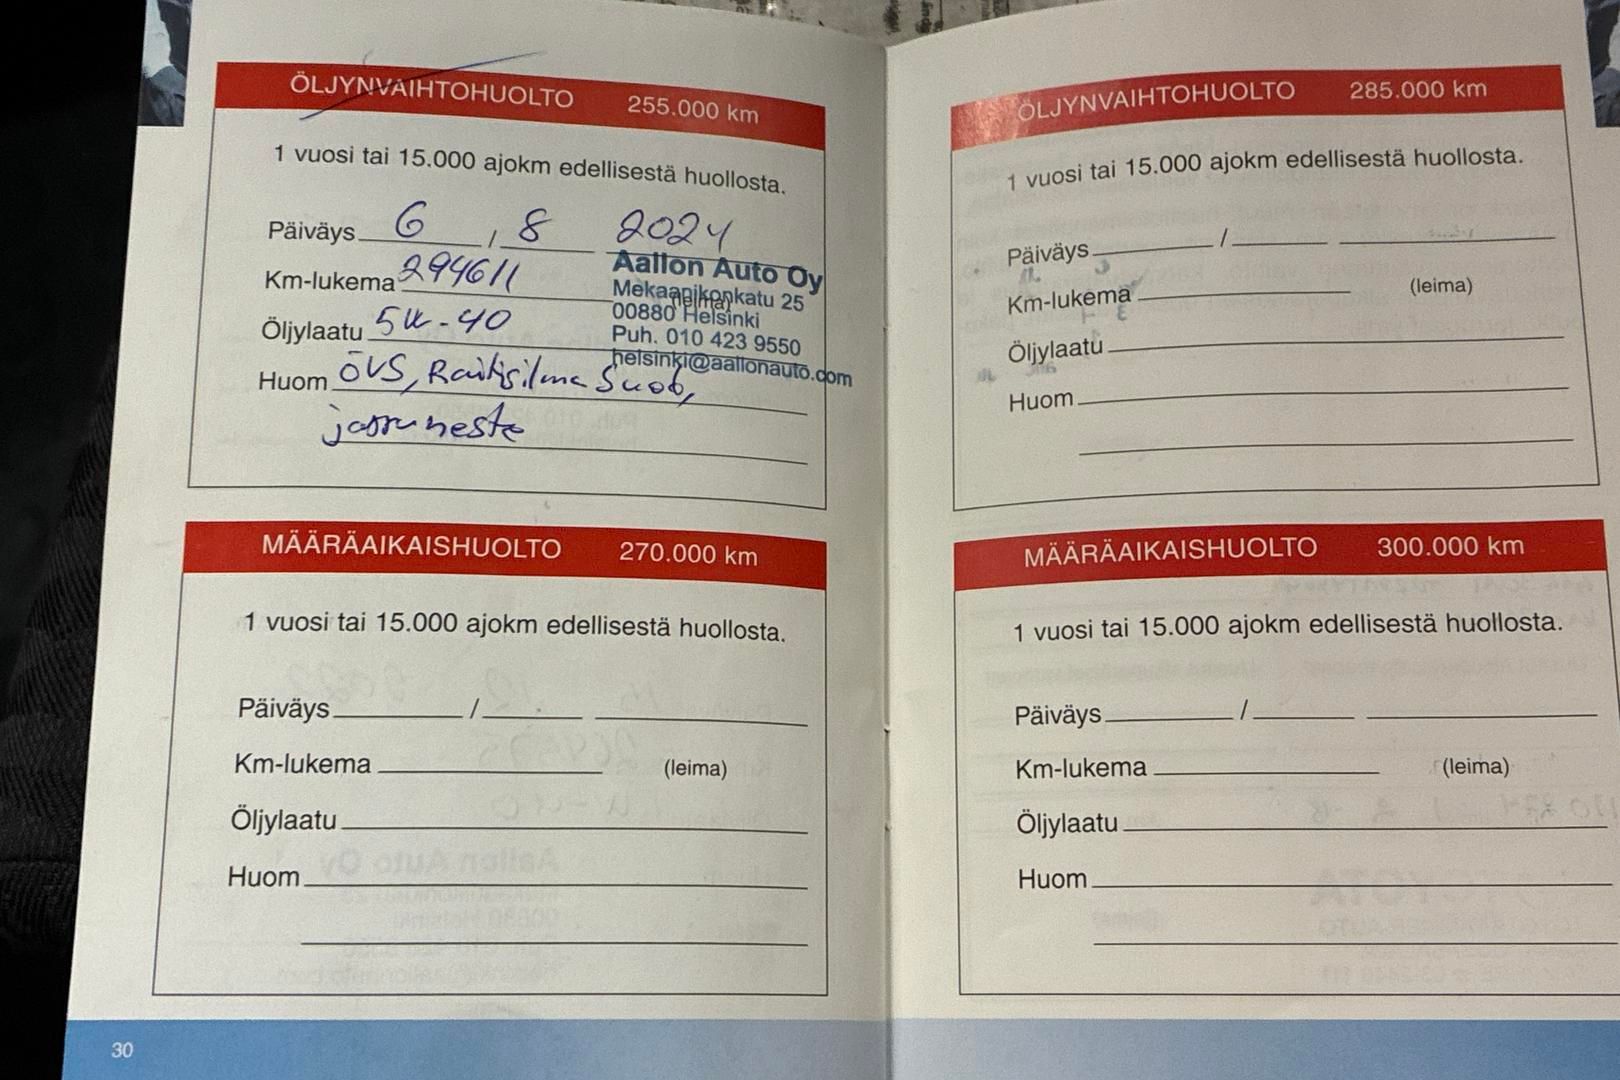 ÖLJYNVAIHTOHUOLTO 255.000 km
1 vuosi tai 15.000 ajokm edellisestä huollosta.
Päiväys 6 / 8 2024
Km-lukema 294611
Öljylaatu 5W-40
Aallon Auto Oy
Mekaanikonkatu 25
(leima)
00880 Helsinki
Puh. 010 423 9550
helsinki@aallonauto.com
Huom ÖVS, Raitisilma Suod,
jarruneste
MÄÄRÄAIKAISHUOLTO 270.000 km
1 vuosi tai 15.000 ajokm edellisestä huollosta.
Päiväys / 
Km-lukema (leima)
Öljylaatu
Huom
30
ÖLJYNVAIHTOHUOLTO 285.000 km
1 vuosi tai 15.000 ajokm edellisestä huollosta.
Päiväys /
Km-lukema (leima)
Öljylaatu
Huom
MÄÄRÄAIKAISHUOLTO 300.000 km
1 vuosi tai 15.000 ajokm edellisestä huollosta.
Päiväys /
Km-lukema (leima)
Öljylaatu
Huom